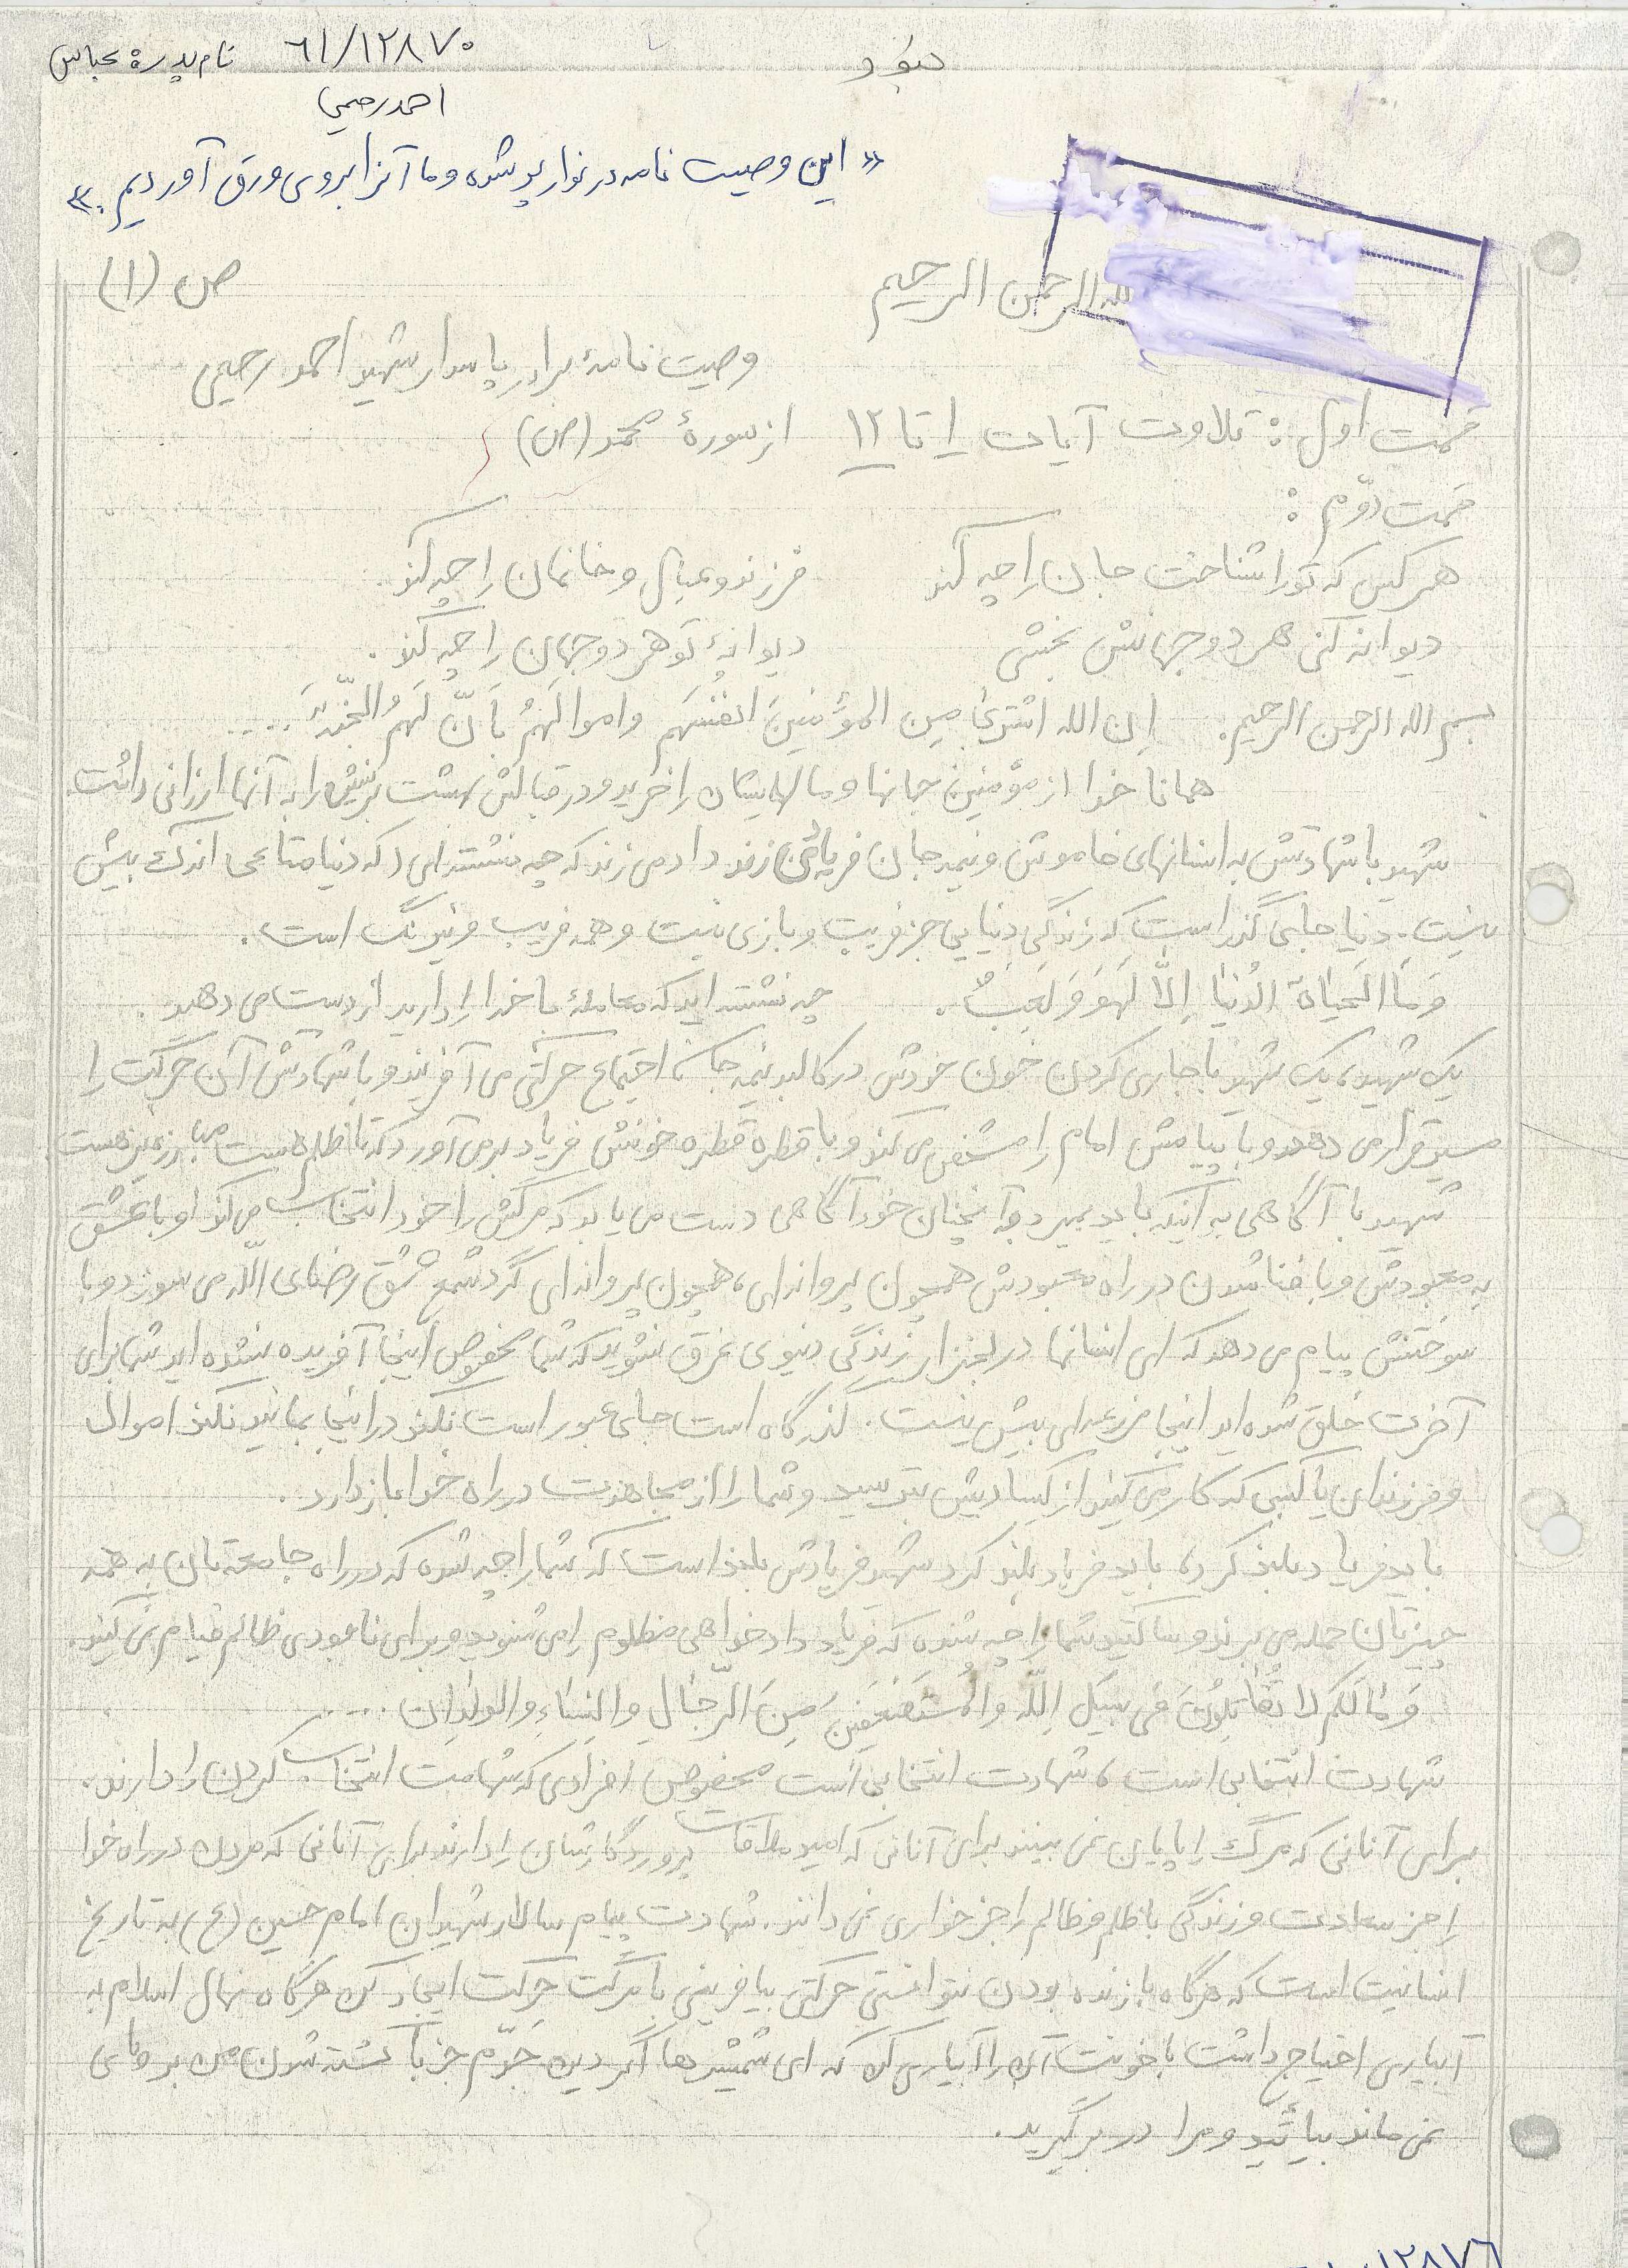 نام پدر: عباس ۶۱/۱۲۸۷۰
احمد رحیمی
« این وصیت نامه در نوار پر شده و ما آنرا بروی ورق آوردیم. »
الله الرحمن الرحیم ص (۱)
وصیت نامهٔ برادر پاسدار شهید احمد رحیمی
قسمت اول : تلاوت آیات ۱ تا ۱۲ از سورهٔ محمد (ص)
قسمت دوّم :
هر کس که تو را شناخت جان را چه کند فرزند و عیال و خانمان را چه کند.
دیوانه کنی هر دو جهانش بخشی دیوانهٔ تو هر دو جهان را چه کند.
بسم الله الرحمن الرحیم. اِن الله اشتریٰ مِن المؤمنینَ انفُسَهم واموالَهُم بِاَنّ لَهمُ الجَنّة ....
همانا خدا از مؤمنین جانها و مالهایشان را خرید و در قبالش بهشت برینش را به آنها ارزانی داشت.
شهید با شهادتش به انسانهای خاموش و نیمه جان فریاد می زند داد می زند که چه نشسته اید که دنیا متاعی اندک بیش
نیست. دنیا جای گذر است که زندگی دنیایی جز فریب و بازی نیست و همه فریب و نیرنگ است.
وَ مَا الحَیاةُ الدُنیا اِلّا لَهوٌ وَ لَعِبٌ. چه نشسته اید که معاملهٔ با خدا را دارید از دست می دهید.
یک شهید، یک شهید با جاری کردن خون خودش در کالبد نیمه جان اجتماع حرکتی می آفریند و با شهادتش آن حرکت را
مسیر قرار می دهد و با پیامش امام را مشخص می کند و با قطره قطره خونش فریاد بر می آورد که تا ظلم هست مبارزه نیز هست.
شهید با آگاهی به اینکه باید بمیرد به آنچنان خودآگاهی دست می یابد که مرگش را خود انتخاب می کند او با عشق
به معبودش و با فنا شدن در راه معبودش همچون پروانه ای، همچون پروانه ای گرد شمع عشق رضای الله می سوزد و با
سوختنش پیام می دهد که ای انسانها در لجنزار زندگی دنیوی غرق نشوید که شما مخصوص اینجا آفریده نشده اید شما برای
آخرت خلق شده اید اینجا مزرعه ای بیش نیست. گذرگاه است جای عبور است نکند در اینجا بمانید نکند اموال
و فرزندان یا کسبی که کار می کنید از کسادیش بترسید و شما را از مجاهدت در راه خدا باز دارد.
باید فریاد بلند کرد، باید فریاد بلند کرد شهید فریادش بلند است که شما را چه شده که در راه جامعه تان به همه
چیزتان حمله می برند و ساکتید شما را چه شده که فریاد دادخواهی مظلوم را می شنوید و برای نابودی ظالم قیام نمی کنید.
وَ مٰالَکم لا تُقاتِلُونَ فی سبیل اللّه وَ المُستَضعَفینَ مِنَ الرّجٰالِ وَ النِساءِ وَ الولدٰانِ ....
شهادت انتخابی است، شهادت انتخابی است مخصوص افرادی که شهامت انتخاب کردن را دارند.
برای آنانی که مرگ را پایان نمی بینند برای آنانی که امید ملاقات پروردگارشان را دارند برای آنانی که مردن در راه خدا
را جز سعادت و زندگی با ظلم و ظالم را جز خواری نمی دانند. شهادت پیام سالار شهیدان امام حسین (ع) به تاریخ
انسانیت است که هرگاه با زنده بودن نتوانستی حرکتی بیافرینی با مرگت حرکت ایجاد کن هرگاه نهال اسلام به
آبیاری احتیاج داشت با خونت آن را آبیاری کن که ای شمشیرها اگر دین جدّم جز با کشته شدن من بر پای
نمی ماند بیائید و مرا در بر گیرید.